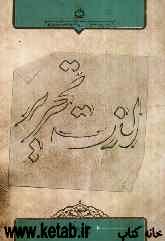 لذت تحریر
خانه کتاب
www.ketab.ir